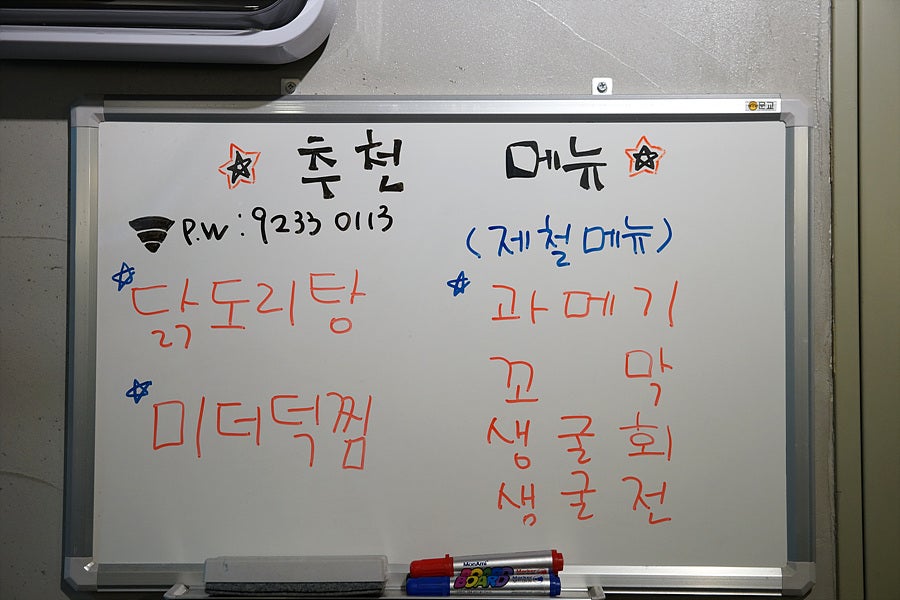 문교
추천 메뉴
P.W : 9233 0113
(제철메뉴)
닭도리탕
미더덕찜
과메기
꼬막
생굴회
생굴전
MonAmi
BOARD
BOARD